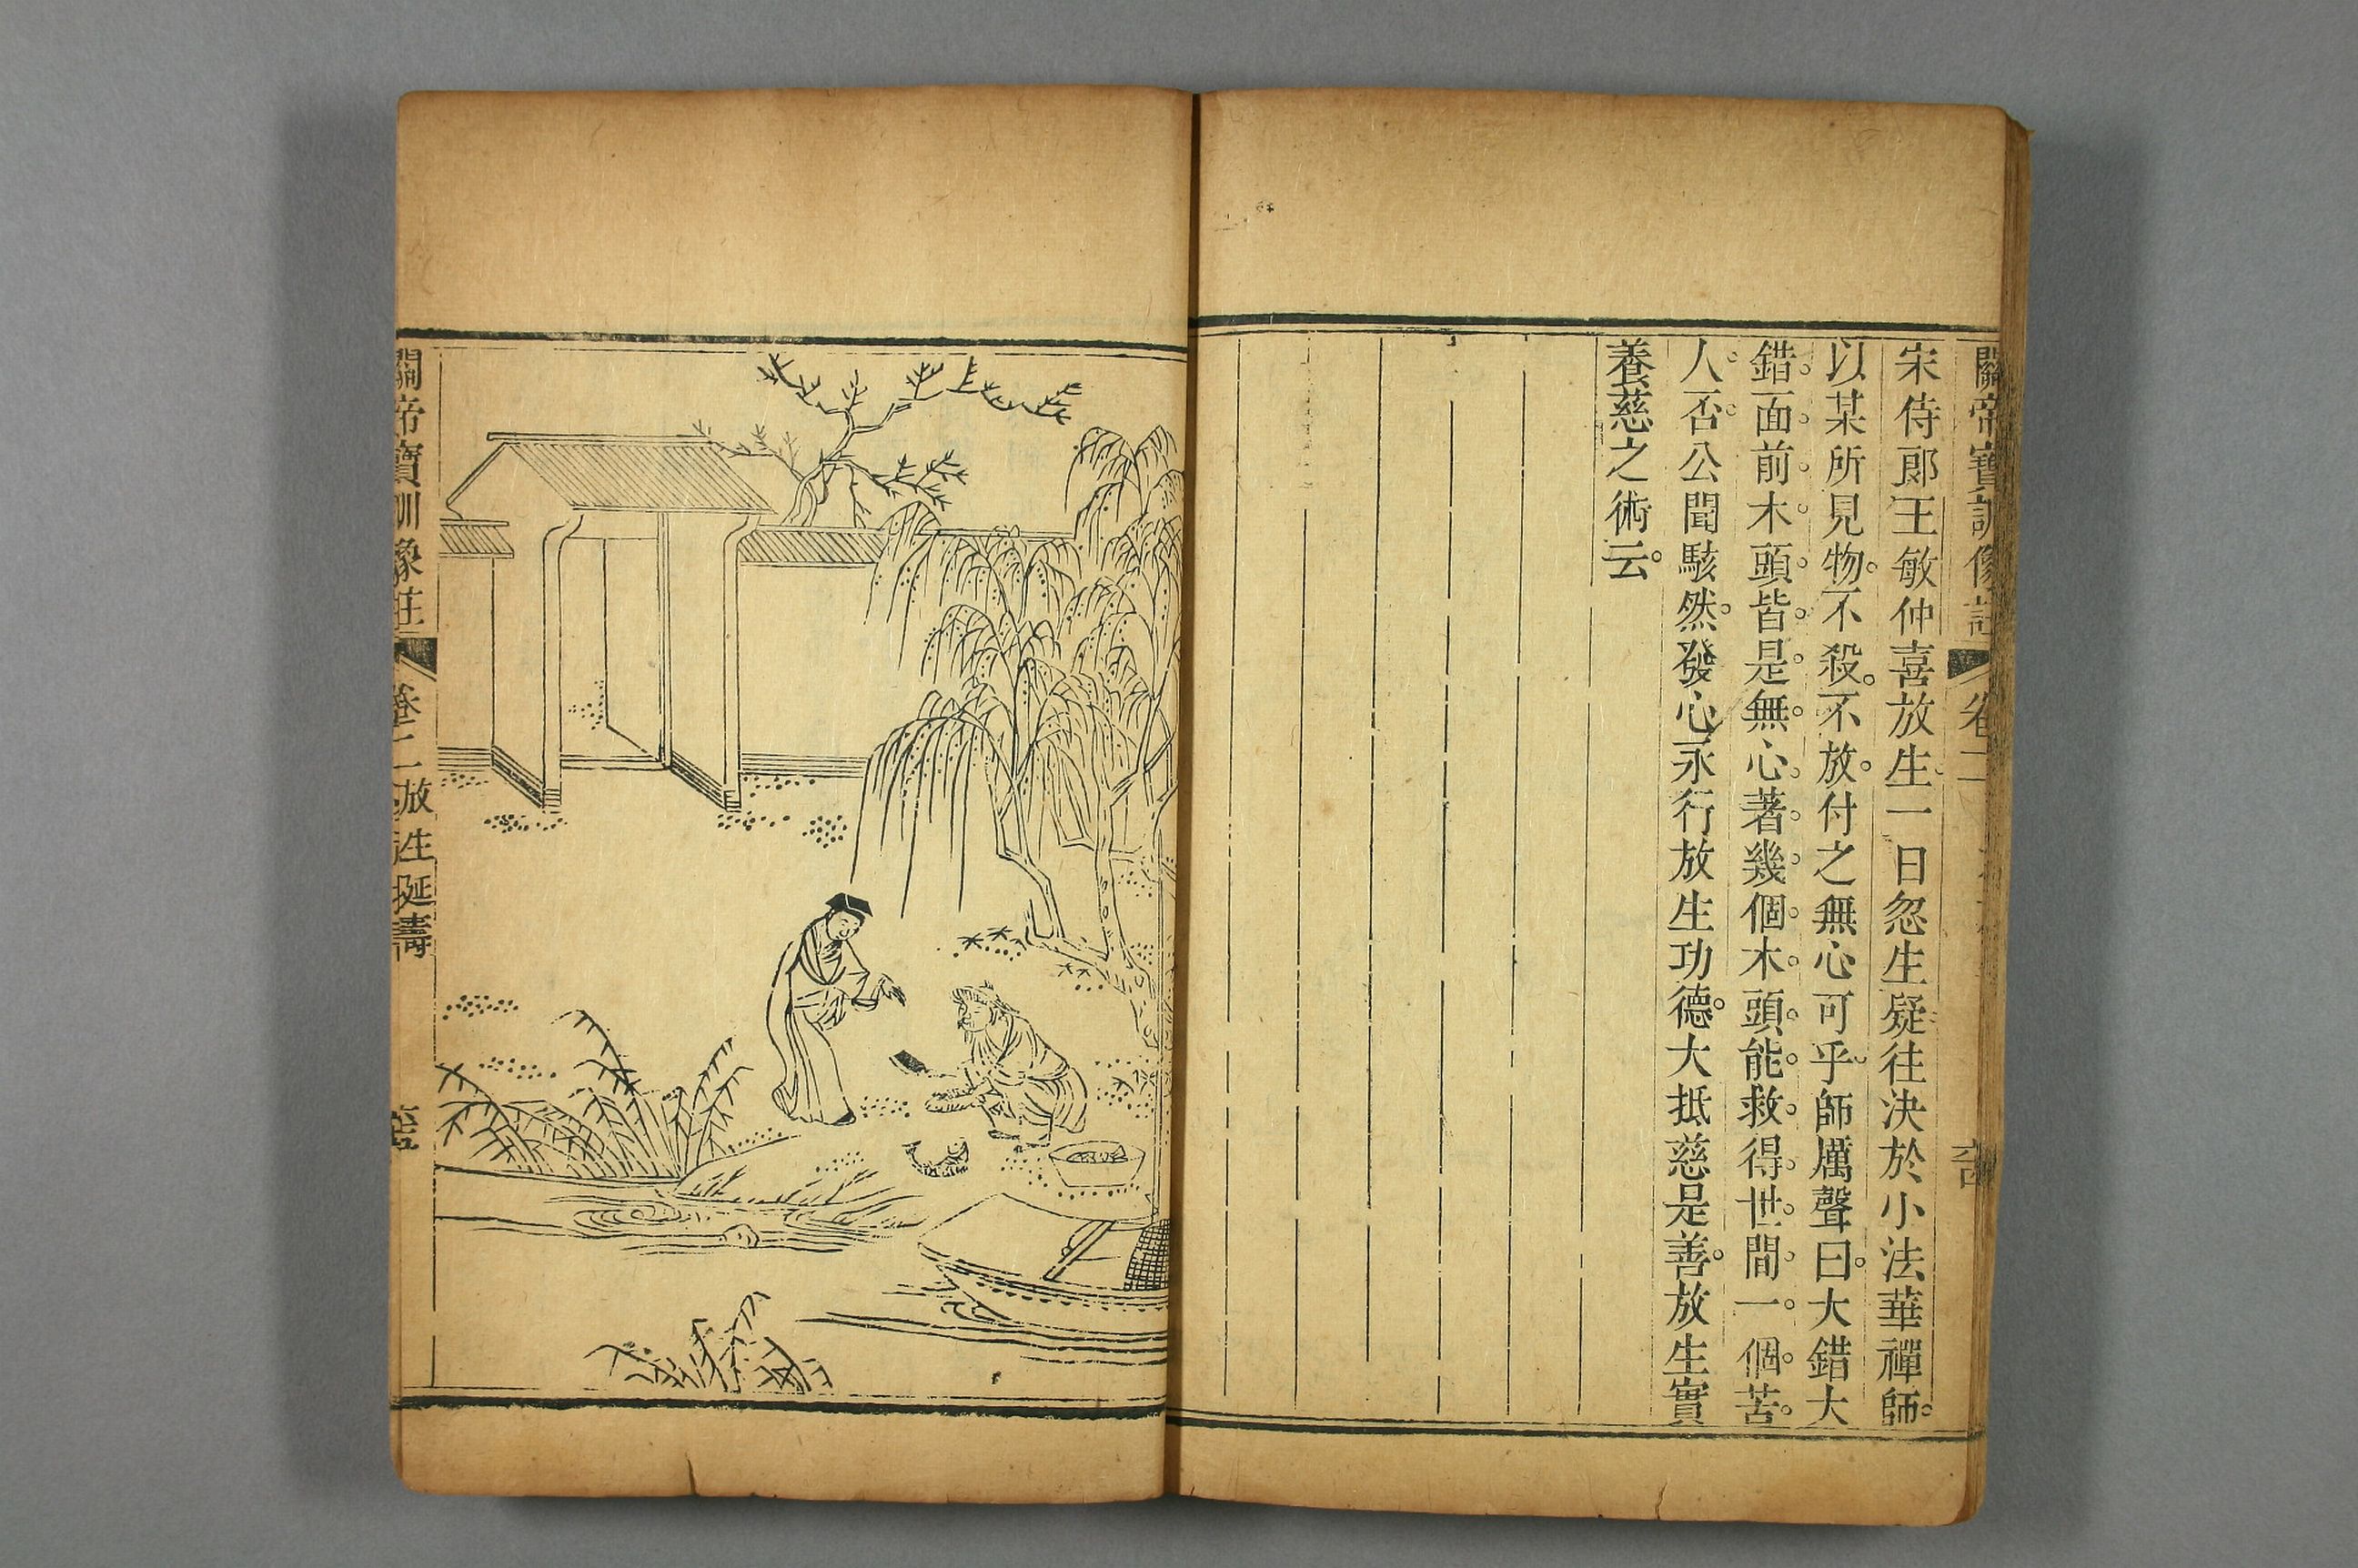 關帝寶訓像註 卷二
宋侍郎王敏仲喜放生一日忽生疑往決於小法華禪師。
以某所見物。不殺。不放。付之無心可乎師厲聲曰。大錯大
錯。面。前。木。頭。皆。是。無。心。著。幾。個。木。頭。能。救。得。世。間。一。個。苦。
人。否。公聞駭然。發心永行放生功德。大抵慈是善。放生實
養慈之術云。
關帝寶訓像註 卷二 放生延壽